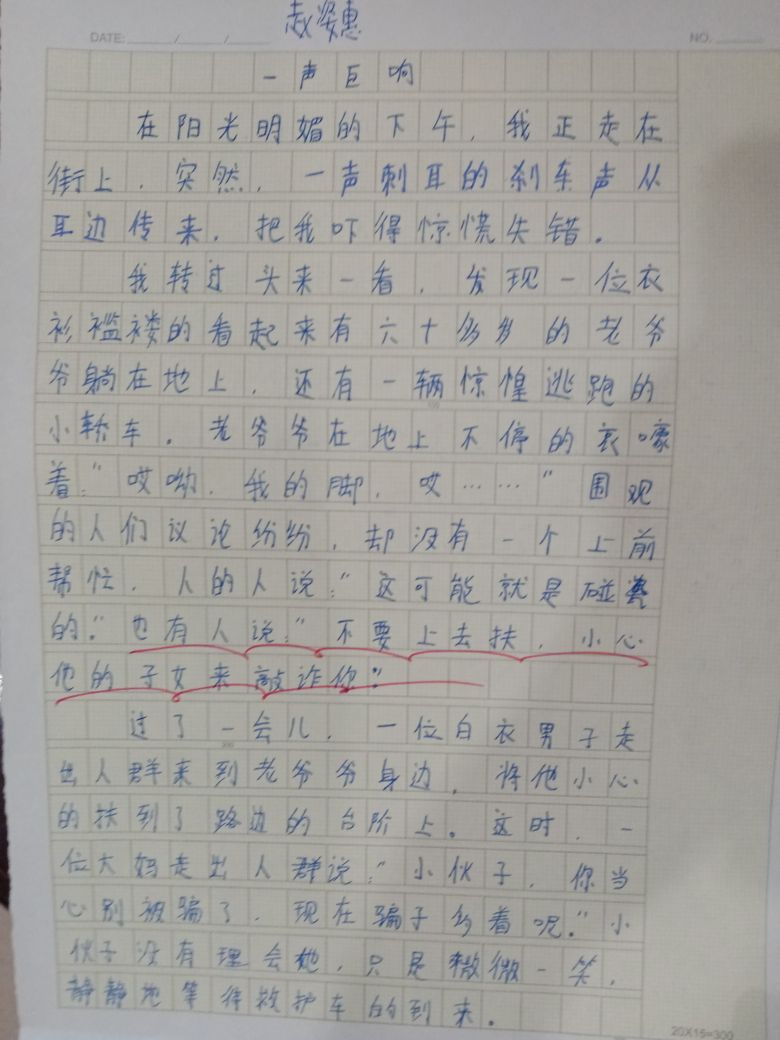 赵姿惠
DATE: / / NO.
一声巨响
在阳光明媚的下午，我正走在
街上，突然，一声刺耳的刹车声从
耳边传来，把我吓得惊慌失错。
我转过头来一看，发现一位衣
衫褴褛的看起来有六十多岁的老爷
爷躺在地上，还有一辆惊惶逃跑的
小轿车。老爷爷在地上不停的哀嚎
着:"哎呦，我的脚，哎……"围观
的人们议论纷纷，却没有一个上前
帮忙，人的人说:"这可能就是碰瓷
的."也有人说:"不要上去扶，小心
他的子女来敲诈你."
过了一会儿，一位白衣男子走
出人群来到老爷爷身边，将他小心
的扶到了路边的台阶上。这时，一
位大妈走出人群说:"小伙子，你当
心别被骗了，现在骗子多着呢."小
伙子没有理会她，只是微微一笑，
静静地等待救护车的到来。
20X15=300